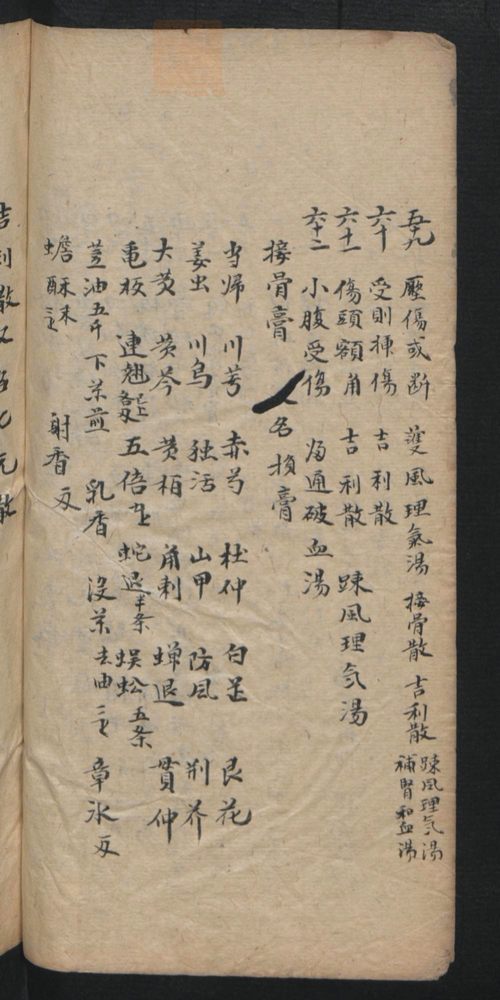 五九 壓傷或斷 護風理氣湯 接骨散 吉利散 踈風理氣湯 補腎和血湯
六十 受刖揮傷 吉利散
六十一 傷頭額角 吉利散 踈風理氣湯
六十二 小腹受傷 歸通破血湯
接骨膏 名損膏
当归 川芎 赤芍 杜仲 白芷 艮花
姜虫 川烏 独活 山甲 防風 荆芥
大黄 黄芩 黄柏 角刺 蟬退 貫仲
龟板 連翹 五倍 蛇退半条 蜈蚣五条
蔴油五斤 下茶煎 乳香 没茶去油 章氷
蟾酥末 射香